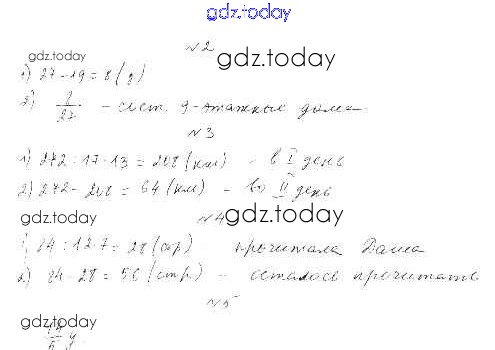 gdz.today
№2
gdz.today gdz.today
1) 27-19=8(д)
2) 8/27 - 9-этажные дома
№3
1) 272:17·13=208(км) - в I день
2) 272-208=64(км) - во II день
gdz.today №4 gdz.today
1) 84:12·7=28(стр) - прочитала Даша
2) 84-28=56(стр) - осталось прочитать
№5
gdz.today